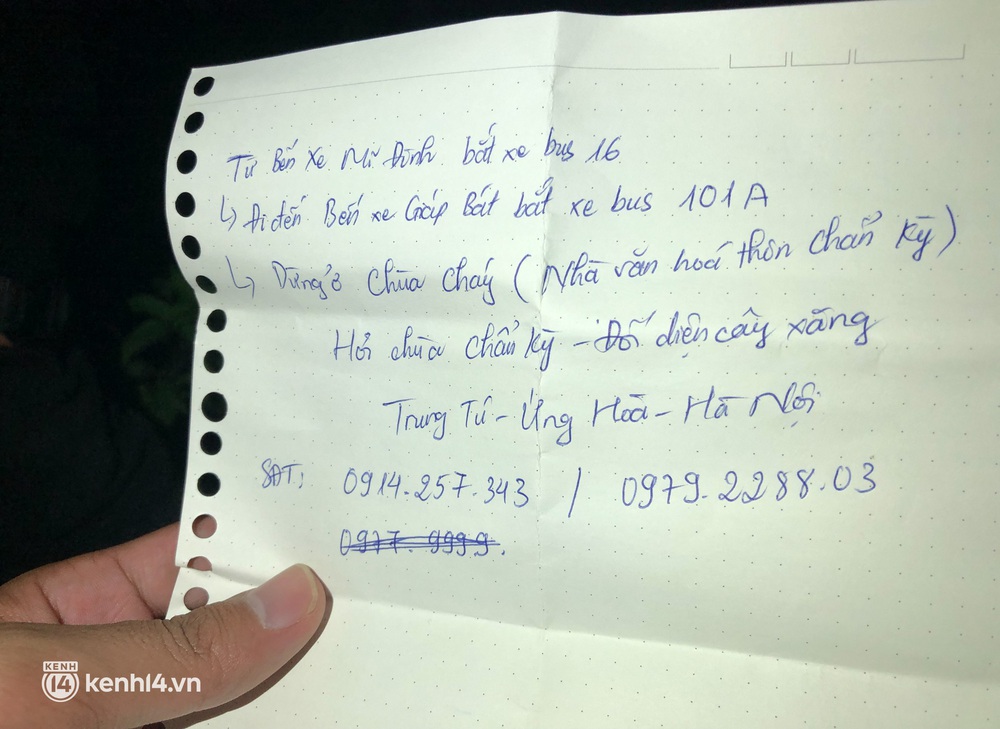 Từ Bến Xe Mĩ Đình bắt xe bus 16
↳ Đi đến Bến xe Giáp Bát bắt xe bus 101A
↳ Dừng ở chùa cháy (Nhà văn hoá thôn chẩn Kỳ)
Hỏi chùa chẩn Kỳ - Đối diện cây xăng
Trung Tú - Ứng Hoà - Hà Nội
SĐT: 0914.257.343 / 0979.2288.03
0977.9999.
KENH 14 kenh14.vn